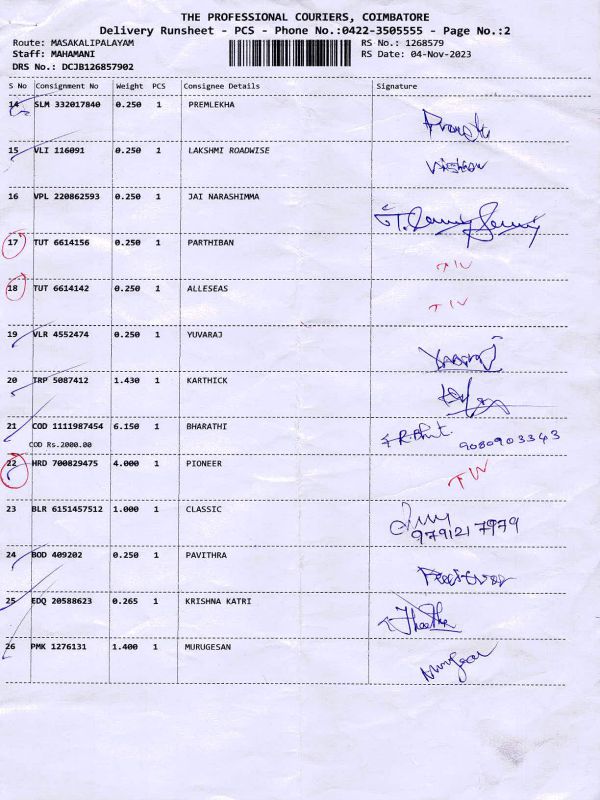 THE PROFESSIONAL COURIERS, COIMBATORE
Delivery Runsheet - PCS - Phone No.:0422-3505555 - Page No.:2
Route: MASAKALIPALAYAM RS No.: 1268579
Staff: MAHAMANI RS Date: 04-Nov-2023
DRS No.: DCJB126857902
S No Consignment No Weight PCS Consignee Details Signature
14 SLM 332017840 0.250 1 PREMLEKHA
15 VLI 116091 0.250 1 LAKSHMI ROADWISE
16 VPL 220862593 0.250 1 JAI NARASHIMMA
17 TUT 6614156 0.250 1 PARTHIBAN
18 TUT 6614142 0.250 1 ALLESEAS
19 VLR 4552474 0.250 1 YUVARAJ
20 TRP 5087412 1.430 1 KARTHICK
21 COD 1111987454 6.150 1 BHARATHI
COD Rs.2000.00 9080903343
22 HRD 700829475 4.000 1 PIONEER
23 BLR 6151457512 1.000 1 CLASSIC
9791217979
24 BOD 409202 0.250 1 PAVITHRA
25 EDQ 20588623 0.265 1 KRISHNA KATRI
26 PMK 1276131 1.400 1 MURUGESAN